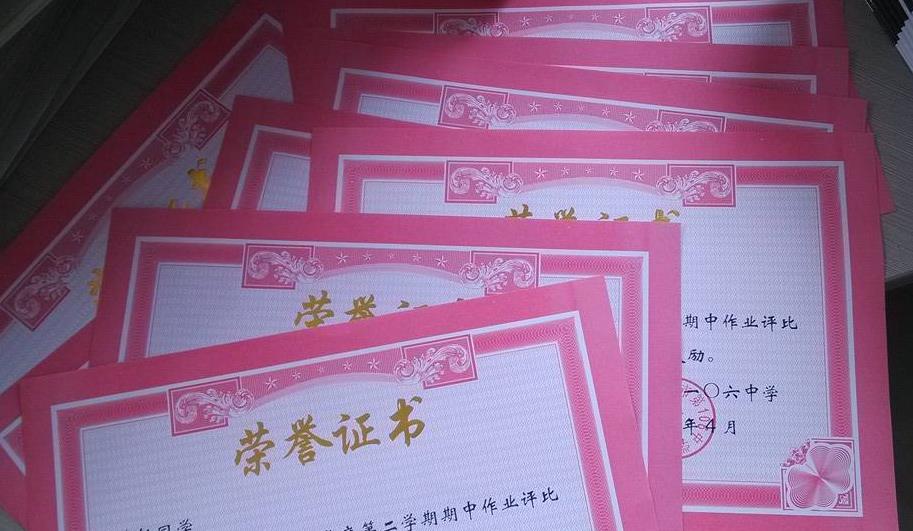 荣誉证书
期中作业评比
励。
一〇六中学
年4月
荣誉证
荣誉证书
同学
第二学期期中作业评比